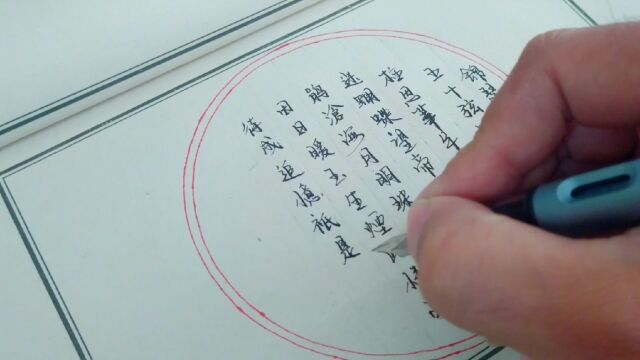 錦
五十弦
柱思華年
迷蝴蝶望帝
鵑滄海月明珠
田日暖玉生煙
待成追憶祇是